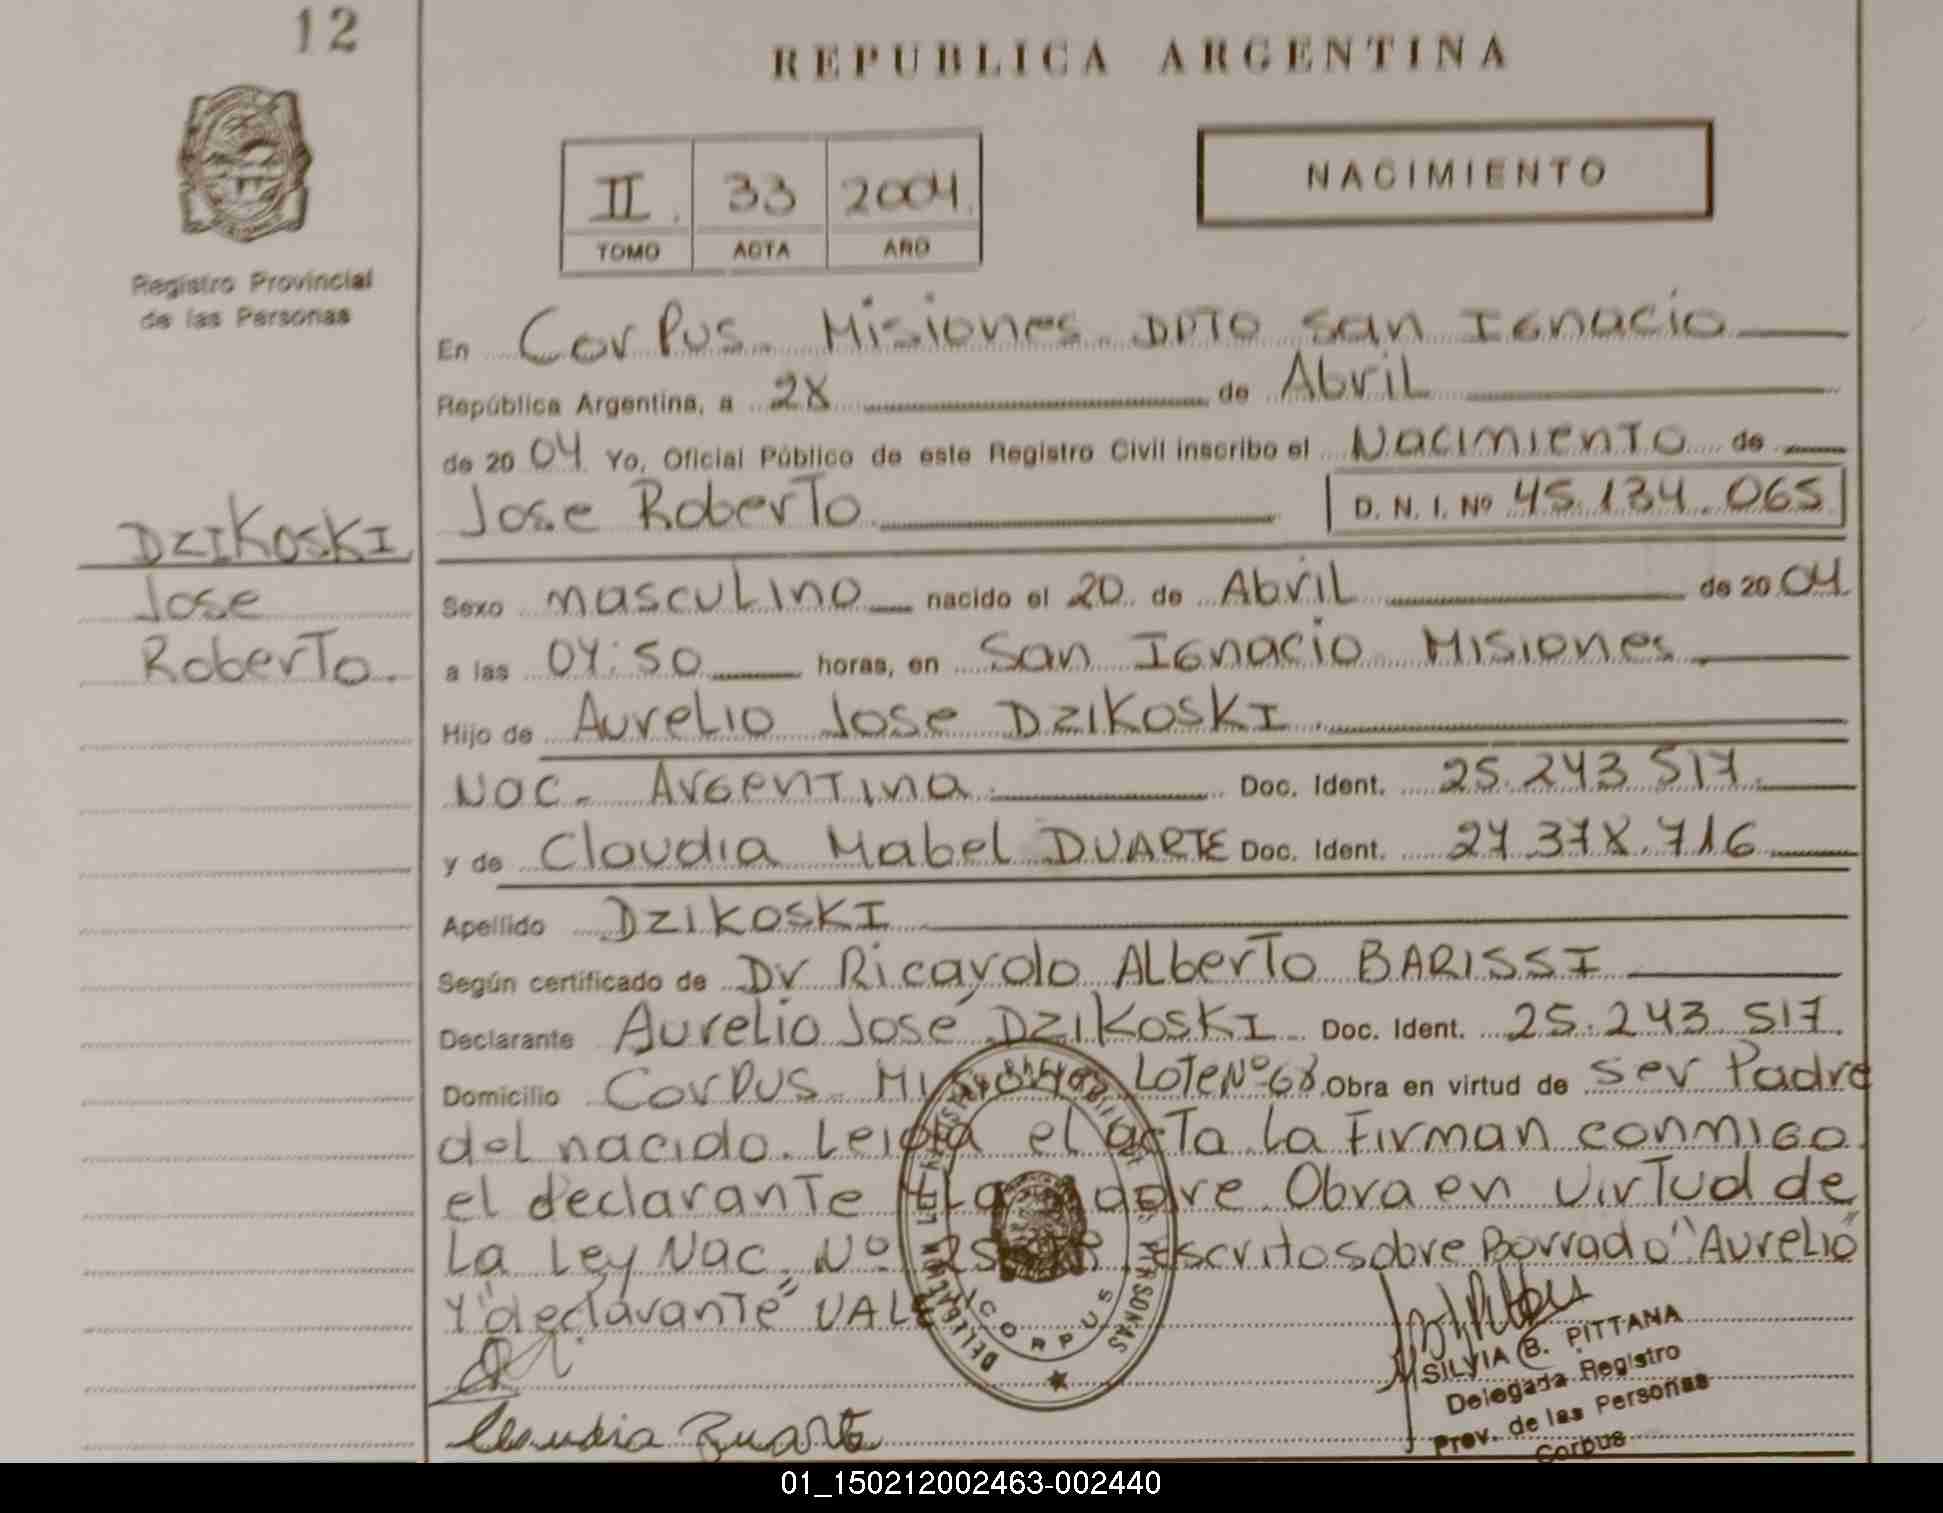 12
REPUBLICA ARGENTINA
II. 33 2004.
TOMO ACTA AÑO
NACIMIENTO
Registro Provincial
de las Personas
En Corpus Misiones DPTO San Ignacio
República Argentina, a 28 de Abril
de 20 04 Yo, Oficial Público de este Registro Civil inscribo el Nacimiento de
Jose Roberto D. N. I. Nº 45.134.065
DZIKOSKI
Jose
Roberto.
Sexo masculino nacido el 20 de Abril de 20 04
a las 04:50 horas, en San Ignacio Misiones
Hijo de Aurelio Jose DZIKOSKI
Nac. Argentina Doc. Ident. 25.243.517
y de Claudia Mabel DUARTE Doc. Ident. 27.378.716
Apellido DZIKOSKI
Según certificado de Dr Ricardo Alberto BARISSI
Declarante Aurelio José DZIKOSKI Doc. Ident. 25.243.517
Domicilio Corpus Lote Nº 68 Obra en virtud de ser Padre
del nacido. Leida el acta la firman conmigo
el declarante Obra en virtud de
La Ley Nac. Nº escrito sobre Borrado "Aurelio"
Y "declarante"
CORPUS
Claudia Duarte
SILVIA B. PITTANA
Delegada Registro
Prov. de las Personas
Corpus
01_150212002463-002440